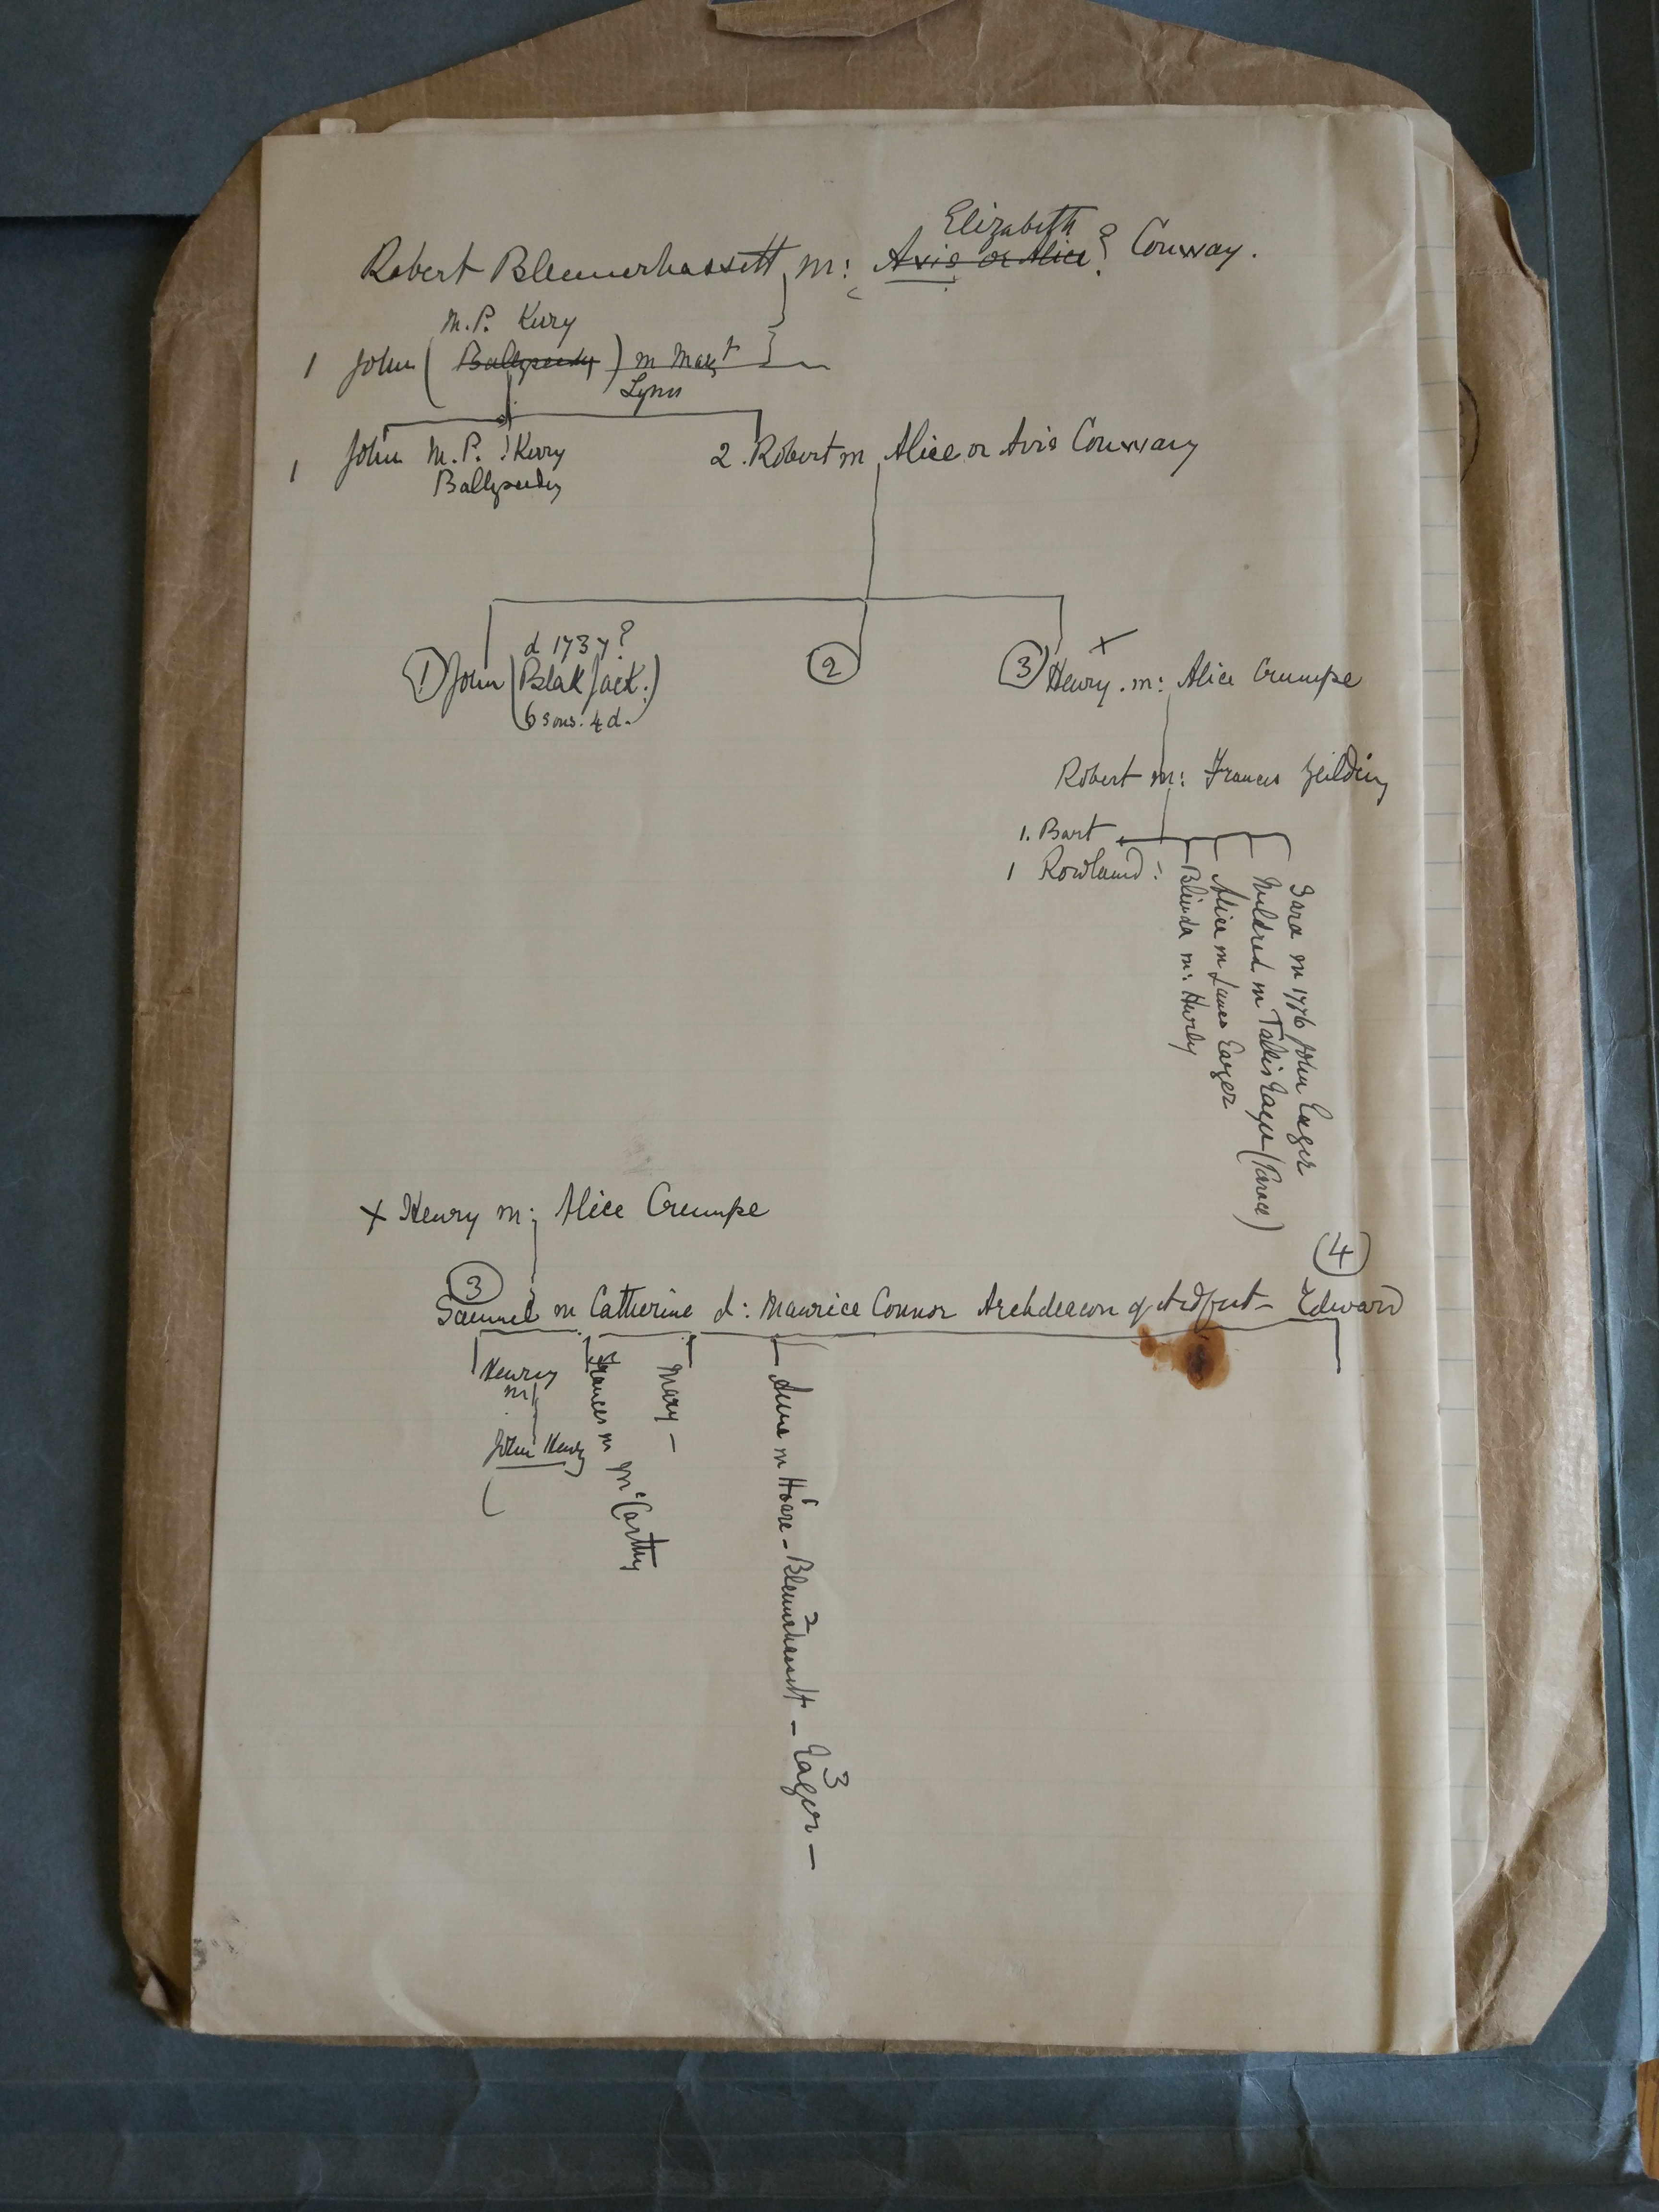 Elizabeth
Robert Blennerhassett m: Avis or Alice? Conway.
M.P. Kerry
1 John ( Ballyseedy ) m Margt
Lynn
1 John M.P. Kerry
Ballyseedy
2. Robert m Alice or Avis Conway
d 1737?
① John (Blak Jack.)
6 sons. 4 d.
②
x
③ Henry. m: Alice Crumpe
Robert m: Frances Yeilding
1. Bart
1 Rowland:
Blinda m: Hurly
Alice m James Eager
Mildred m Eager
Sara m 1776 John Eager
x Henry m: Alice Crumpe
③
④
Samuel m Catherine d: Maurice Connor Archdeacon of Ardfert - Edward
Henry
m
John Henry
Frances m McCarthy
Mary -
Anne m Hoare - Blennerhassett - Eager -
1
2
3